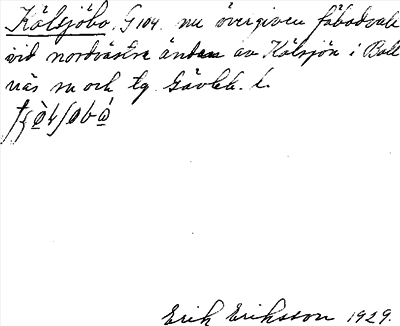 Kölsjöbo. G 104. nu övergiven fäbodvall
vid nordvästra ändan av Kölsjön i Boll
näs sn och tg. Gävleb. l.
Erik Eriksson 1929.